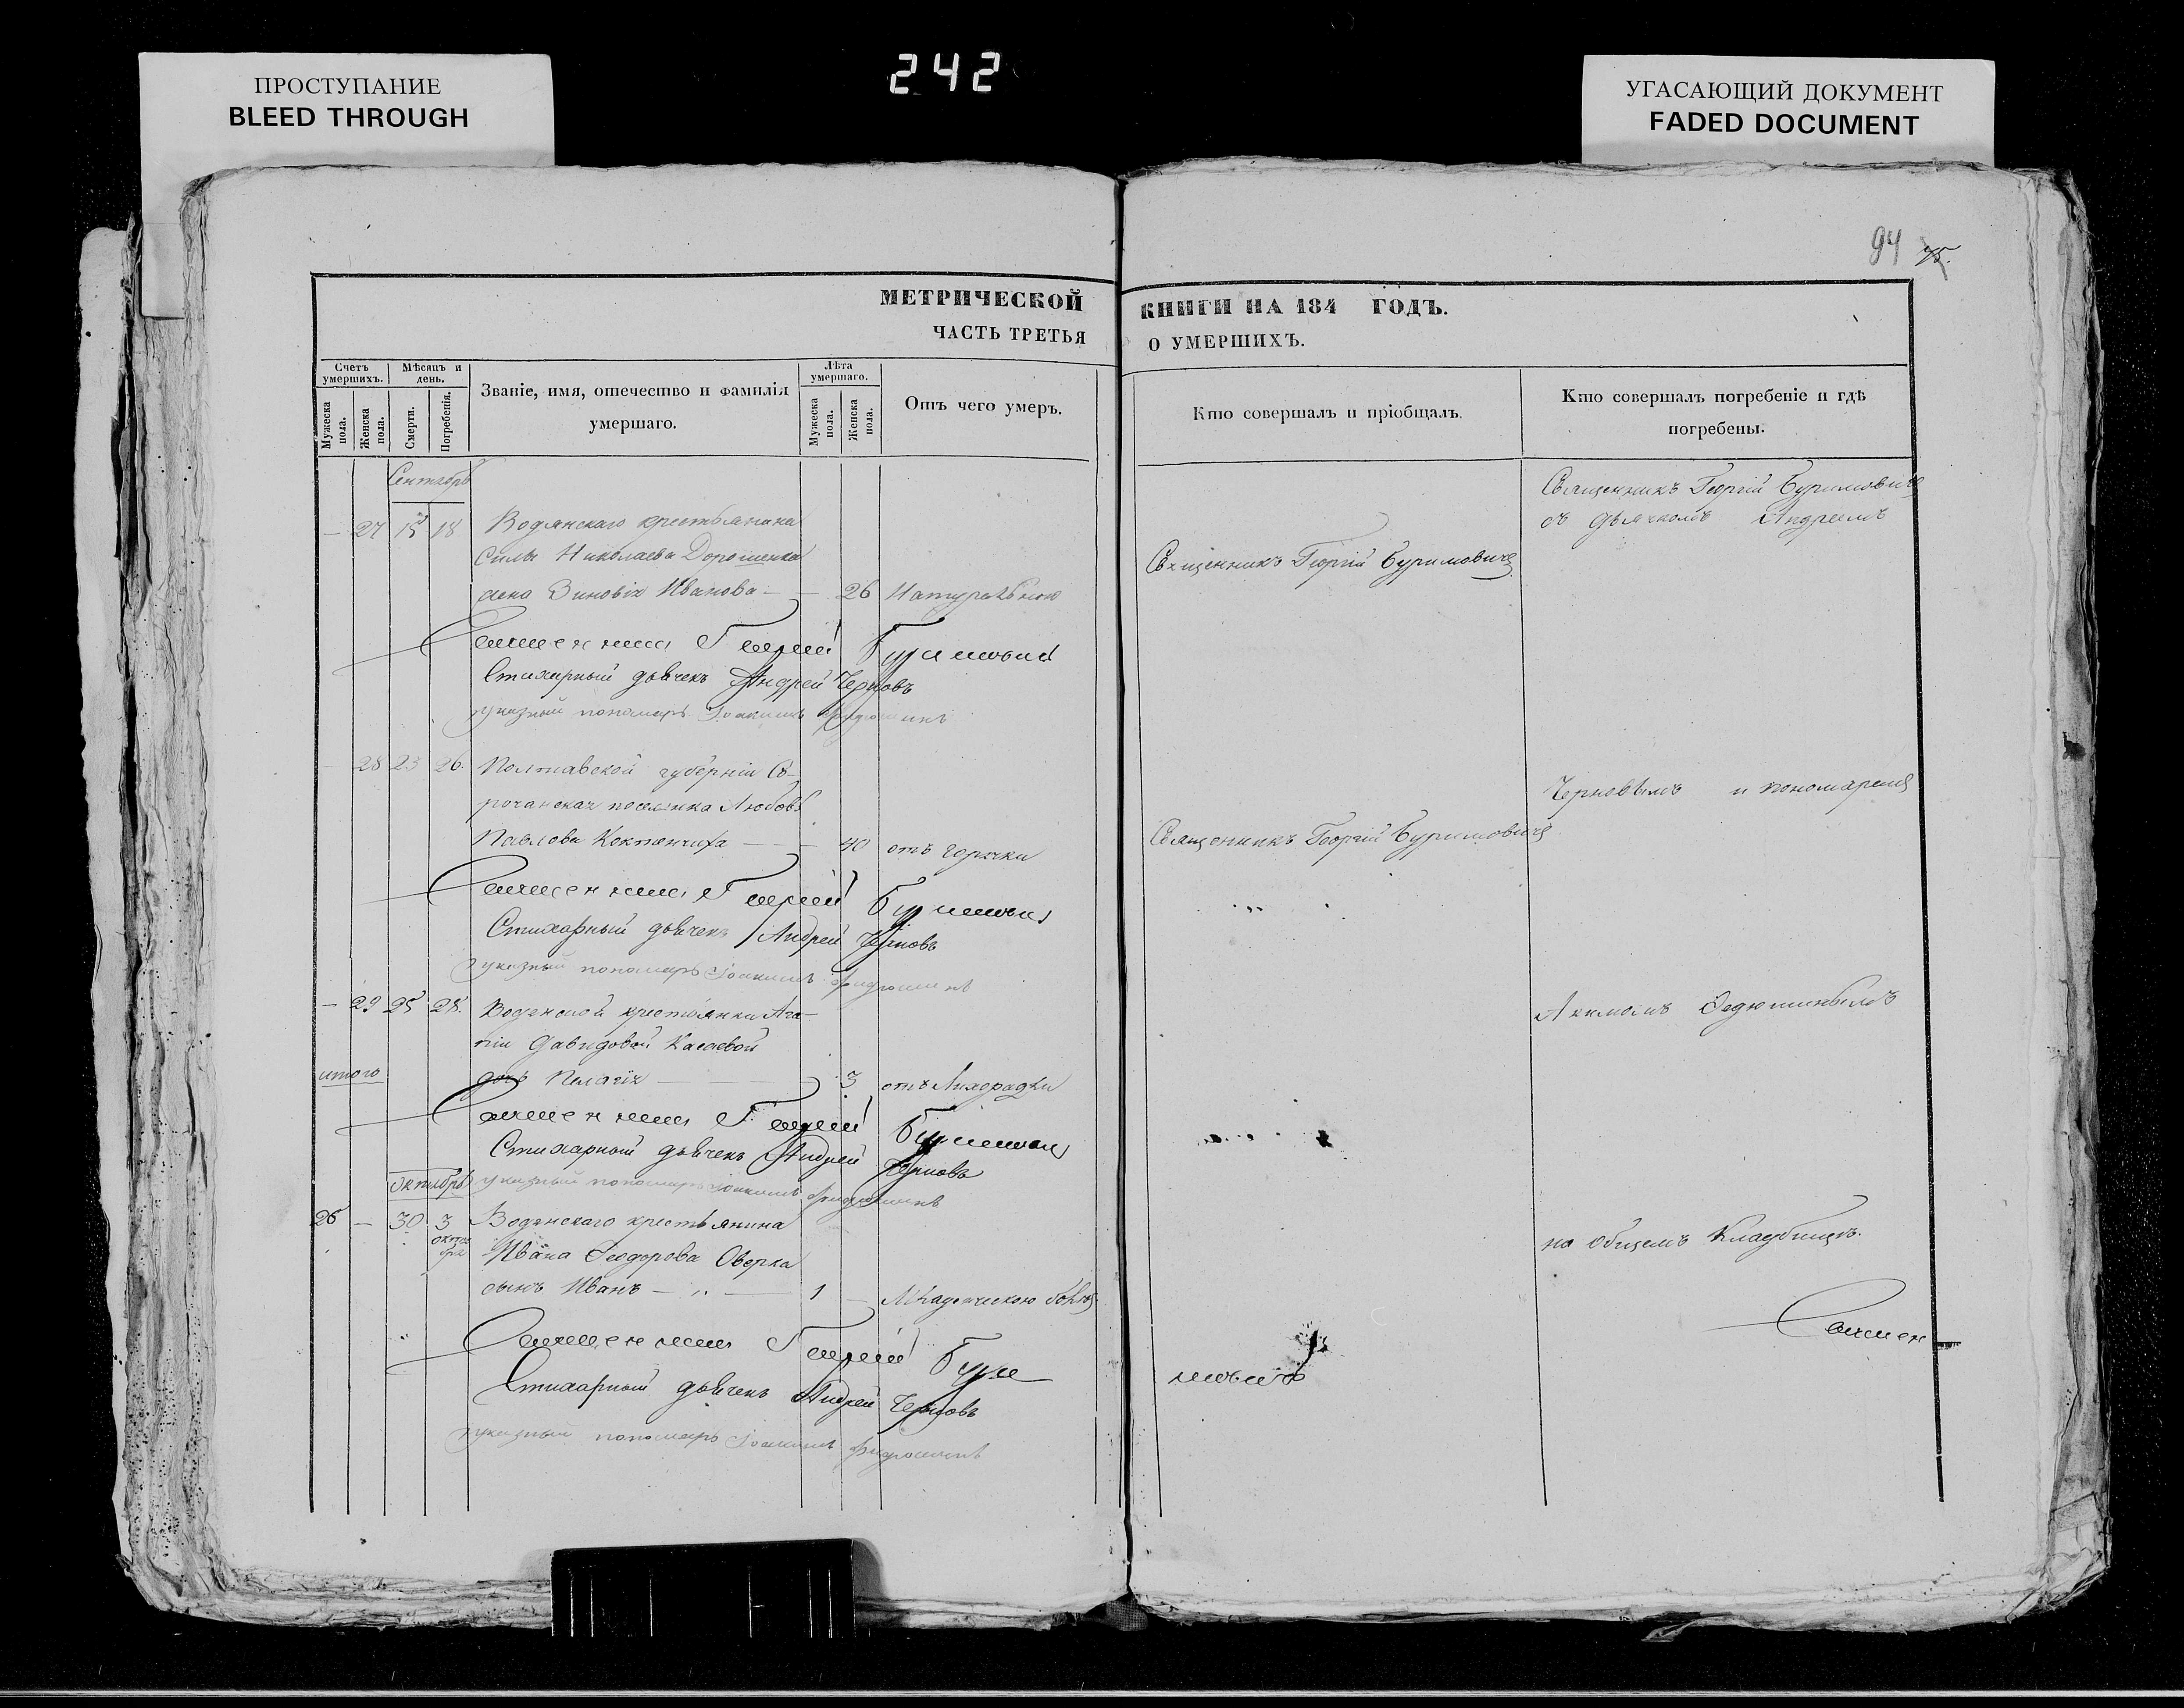 ПРОСТУПАНИЕ
BLEED THROUGH
242
УГАСАЮЩИЙ ДОКУМЕНТ
FADED DOCUMENT
94 75.
МЕТРИЧЕСКОЙ КНИГИ НА 184 ГОДЪ.
ЧАСТЬ ТРЕТЬЯ О УМЕРШИХЪ.
Счетъ умершихъ.
Мѣсяцъ и день.
Званіе, имя, отечество и фамилія умершаго.
Лѣта умершаго.
Отъ чего умеръ.
Кто совершалъ и пріобщалъ.
Кто совершалъ погребеніе и гдѣ погребены.
Мужеска пола.
Женска пола.
Смерти.
Погребенія.
Мужеска пола.
Женска пола.
Сентябрь
— 27 15 18 Водянскаго крестьянина
Силы Николаева Дорошенка
жена Зиновія Иванова — — 26 Натуральною
Священникъ Георгій Буримовичъ
Священникъ Георгій Буримовичъ
съ дьячкомъ Андреемъ
Священникъ Георгій Буримовичъ
Стихарный дьячекъ Андрей Черновъ
указный пономарь Іоакимъ
— 28 23 26. Полтавской губерніи Со-
рочанская поселянка Любовь
Павлова — — 40 отъ горячки
Священникъ Георгій Буримовичъ
Черновымъ и пономаремъ
Священникъ Георгій Буримовичъ
Стихарный дьячекъ Андрей Черновъ
указный пономарь Іоакимъ
— 29 25 28. Водянской крестьянки Ага-
піи Давидовой
итого дочь Пелагія — 3 отъ Лихорадки
Акимомъ Федюшинымъ
Священникъ Георгій Буримовичъ
Стихарный дьячекъ Андрей Черновъ
Октябрь указный пономарь Іоакимъ
26 — 30 3 октября Водянскаго крестьянина
Ивана Феодорова Оверка
сынъ Иванъ — 1 — Младенческою болѣз.
на общемъ Кладбищѣ.
Священ
Священникъ Георгій Буримовичъ
Стихарный дьячекъ Андрей Черновъ
указный пономарь Іоакимъ